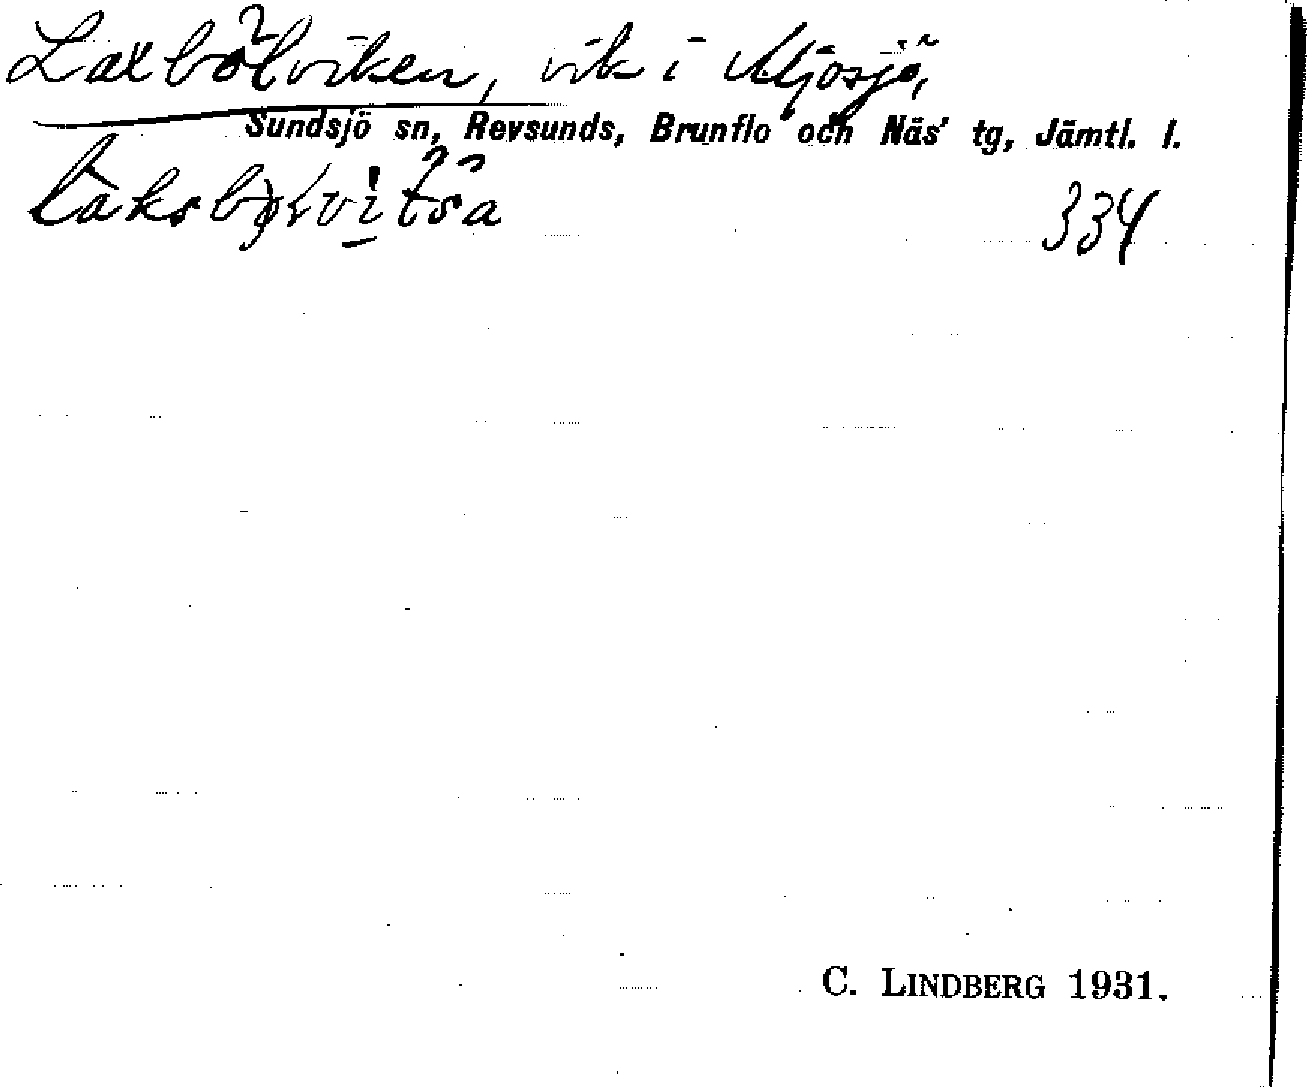 Laxbölviken, vik i Mjösjö,
Sundsjö sn, Revsunds, Brunflo och Näs' tg, Jämtl. l.
334
C. LINDBERG 1931.